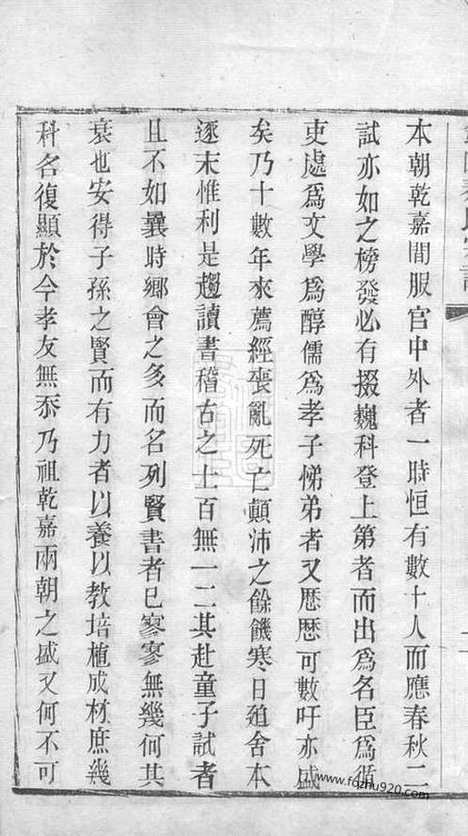 本朝乾嘉間服官中外者一時恒有數十人而應春秋二
試亦如之榜發必有掇巍科登上第者而出爲名臣爲循
吏處爲文學爲醇儒爲孝子悌弟者又歷歷可數吁亦盛
矣乃十數年來薦經喪亂死亡顛沛之餘饑寒日廹舍本
逐末惟利是趨讀書稽古之士百無一二其赴童子試者
且不如曩時鄉會之多而名列賢書者已寥寥無幾何其
衰也安得子孫之賢而有力者以養以教培植成材庶幾
科名復顯於今孝友無忝乃祖乾嘉兩朝之盛又何不可
www.fozhu920.com